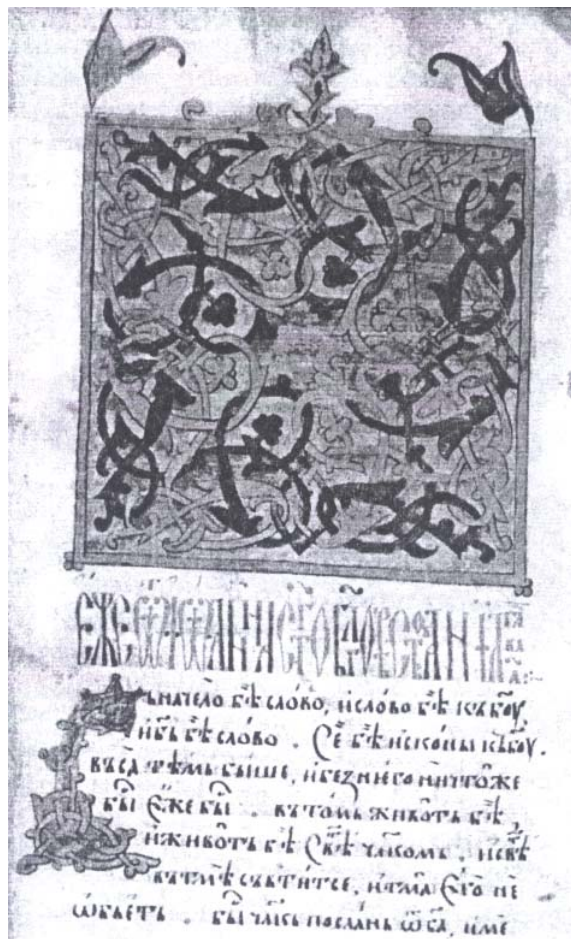 ЕЖЕ ѾІѠАННА СТ҃ОЕ БЛ҃ГОВѢСТ
Въначело бѣ слово, и слово бѣ къ бо҃у
и бь҃ бѣ слово . Се бѣ искони къ бо҃у.
въсꙗ тѣмь быше, и без него ничтоже
бы еже бы . въ томь животь бѣ,
и животь бѣ свѣ чл҃комь . и свѣ
въ тмѣ свѣтитсе, и тма его не
ѡбьеть . бы чл҃кь посланъ ѿ ба҃, име